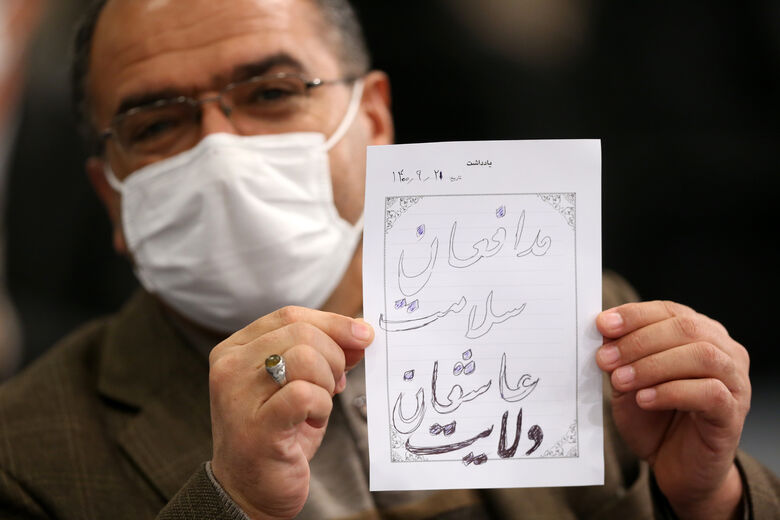 یادداشت
تاریخ: ۱۴۰۰/۹/۲۱
مدافعان
سلامت
عاشقان
ولایت